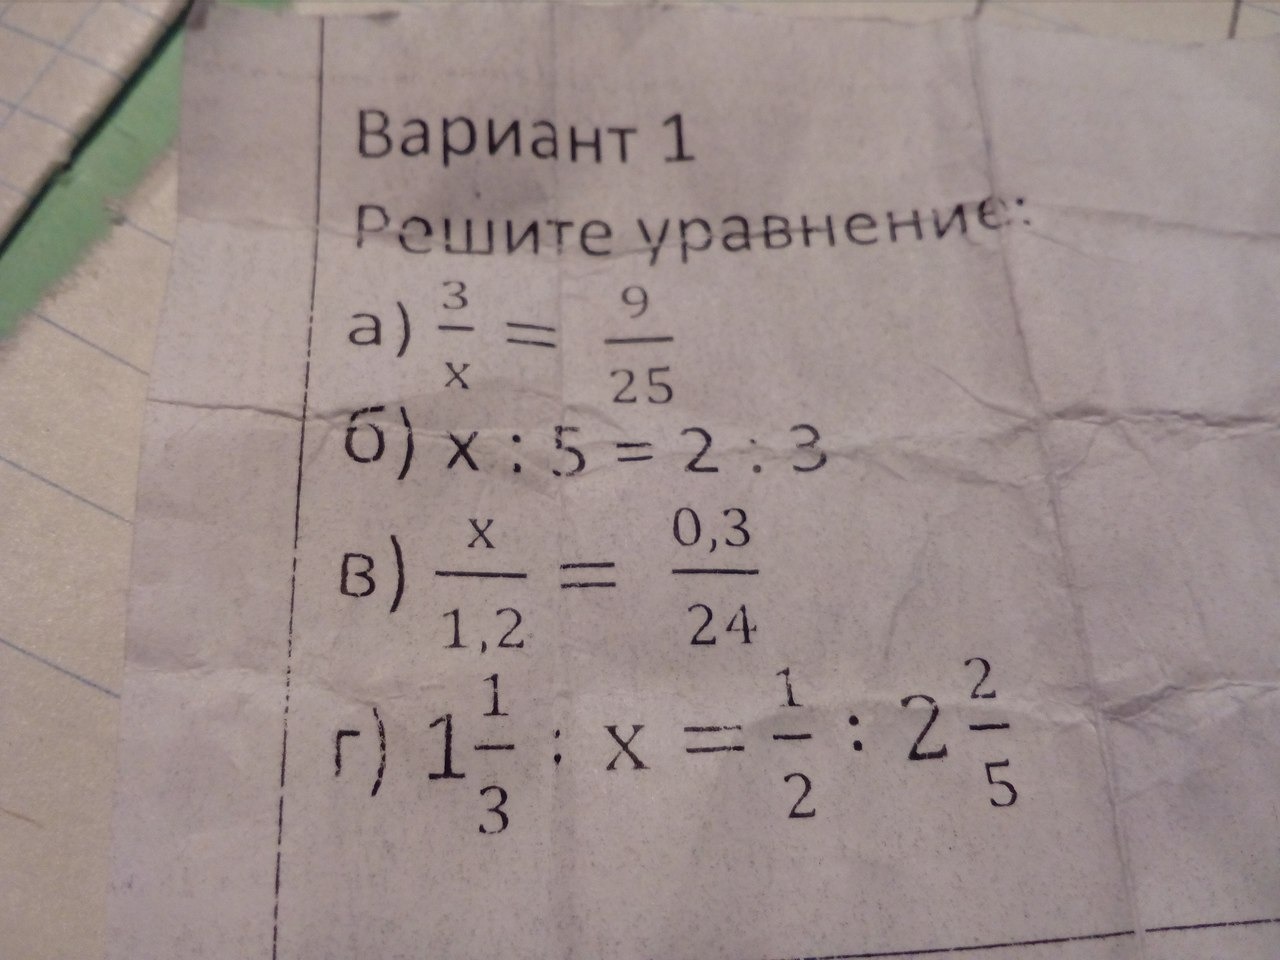 Вариант 1
Решите уравнение:
а) 3/x = 9/25
б) х : 5 = 2 : 3
в) x/1,2 = 0,3/24
г) 1 1/3 : x = 1/2 : 2 2/5